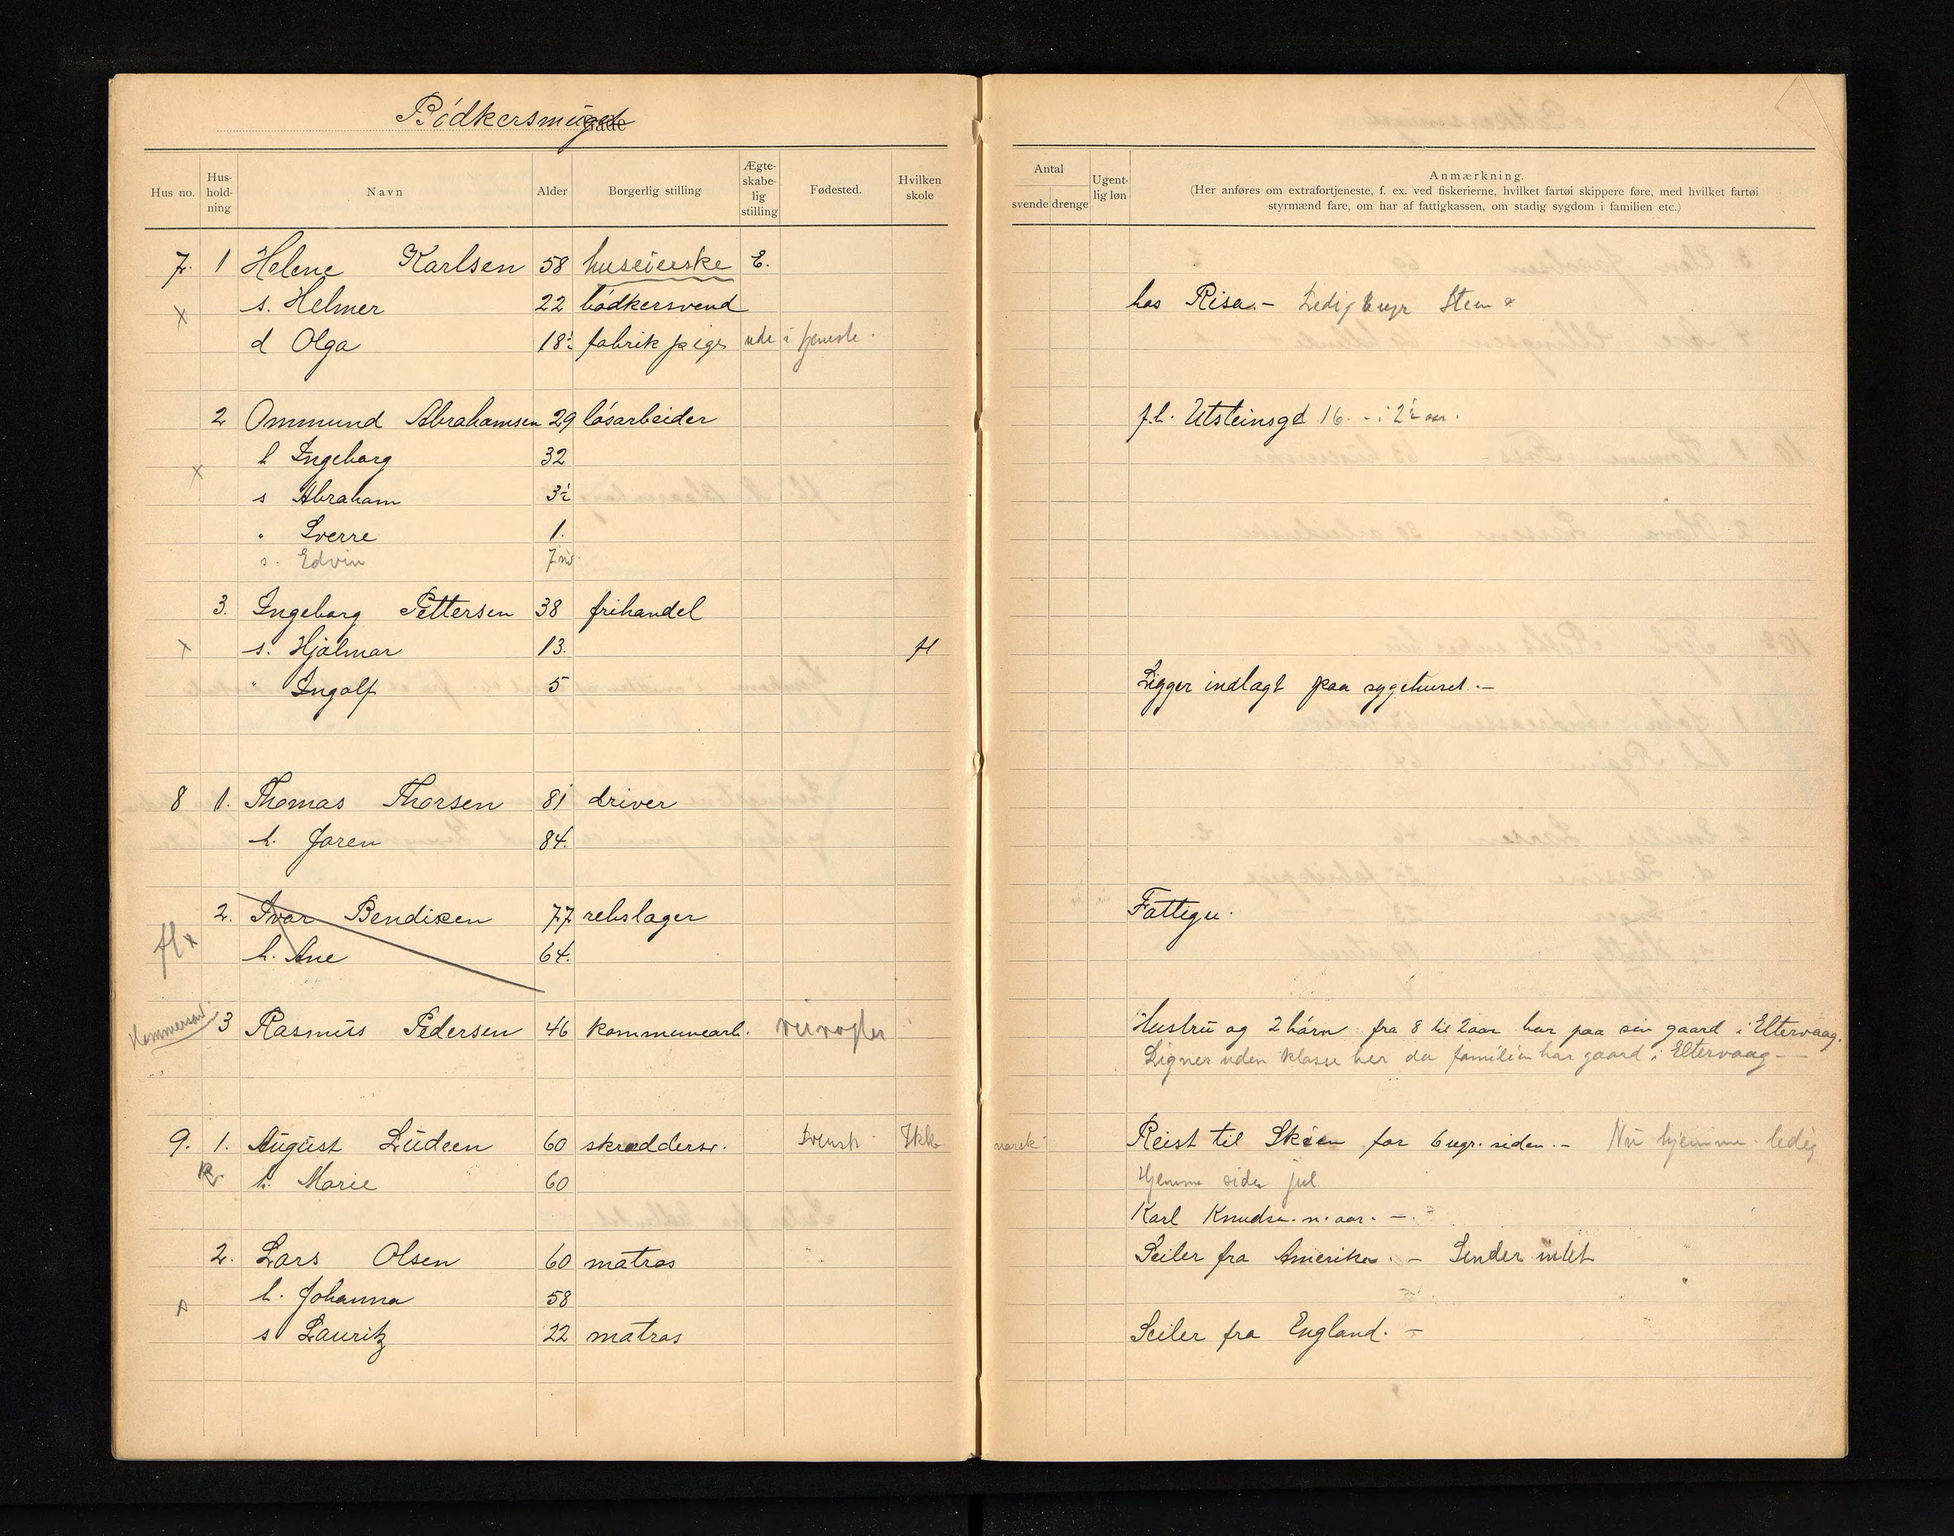 Bödkersmuget Gade
Hus no. Hus-hold-ning Navn Alder Borgerlig stilling Ægte-skabe-lig stilling Fødested. Hvilken skole
Antal svende drenge Ugent-lig løn Anmærkning.
(Her anføres om extrafortjeneste, f. ex. ved fiskerierne, hvilket fartøi skippere føre, med hvilket fartøi
styrmænd fare, om har af fattigkassen, om stadig sygdom i familien etc.)
7. 1 Helene Karlsen 58 huseierske E.
x s. Helmer 22 bødkersvend hos Risa.- Ledig
d Olga 18½ fabrikpige ude i tjeneste.
2 Ommund Abrahamsen 29 løsarbeider f.h. Utsteinsgd 16. - i 2½ aar.
h Ingeborg 32
x s Abraham 3½
" Sverre 1.
s. Edvin 7
3. Ingeborg Pettersen 38 frihandel
x s. Hjalmar 13. H
" Ingolf 5 Ligger indlagt paa sygehuset.-
8 1. Thomas Thorsen 81 driver
h. Joren 84.
2. Ivar Bendixen 77 rebslager Fattigv.
x h. Ane 64.
3 Rasmus Pedersen 46 kommunearb. Hustru og 2 børn fra 8 til 2 aar har paa sin gaard i Eltervaag.
Lignes uden klasse her da familien har gaard i Eltervaag-
9. 1. August Ludeen 60 skræddersv. Svensk Ikke norsk Reist til Skien for 6 ugr. siden.- Nu hjemme ledig
h. Marie 60 Hjemme siden jul
Karl Knudsen. n. aar. -
2. Lars Olsen 60 matros Seiler fra Amerika. - Sender intet
h. Johanna 58
s Lauritz 22 matros Seiler fra England. -